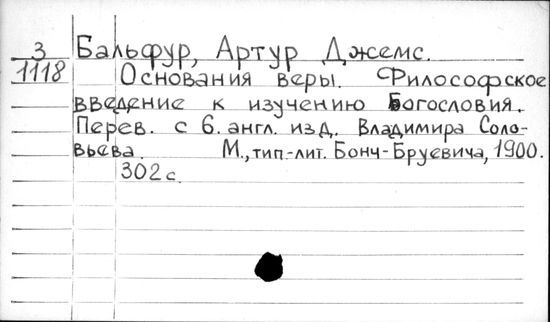 3 Бальфур, Артур Джемс.
1118 Основания веры. Философское
введение к изучению Богословия.
Перев. с 6. англ. изд. Владимира Соло-
вьева. М., тип.-лит. Бонч-Бруевича, 1900.
302 с.